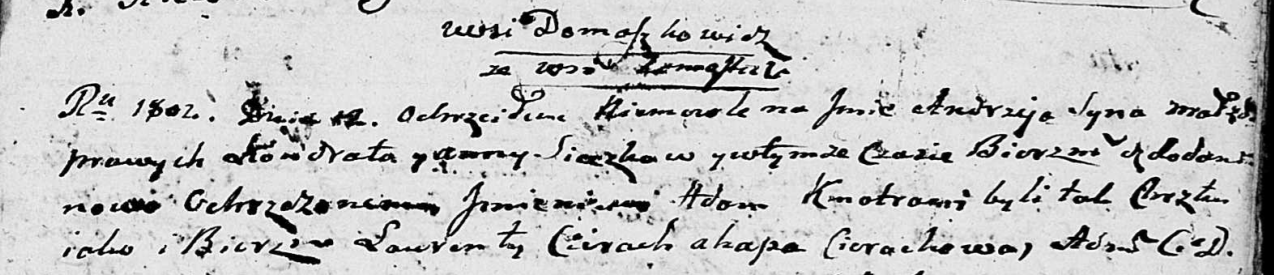 wsi Domaszkowicz
ze wsi Zamostocz
Ru 1802. Dnia 12. Ochrzciłem Niemowle na Jmie Andrzeja Syna małżą
prawych Kondrata y Anny Sieczkow y wtymże Czasie Bierzmo dodano
nowo Ochrzczonemu Jmieniem Adam Kmotrami byli tak Chrztu
iako i Bierzm Laurenty Cierach ahapa Cierachowa,